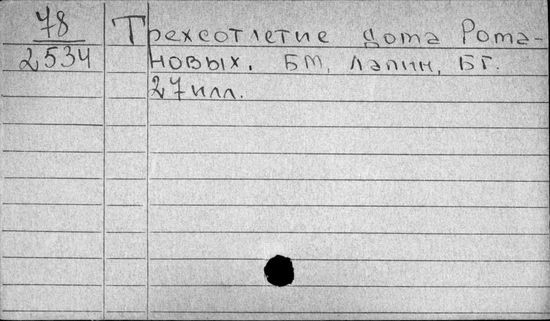 78
2534
Трехсотлетие дома Рома-
новых. БМ, Лапин, БГ.
27 илл.